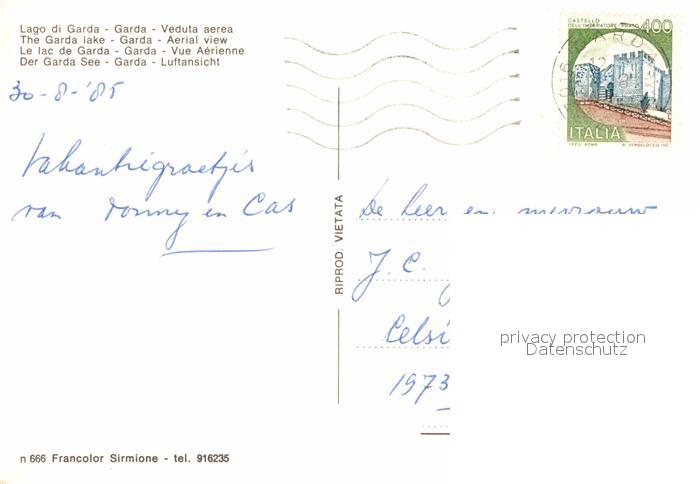 Lago di Garda - Garda - Veduta aerea
The Garda lake - Garda - Aerial view
Le lac de Garda - Garda - Vue Aérienne
Der Garda See - Garda - Luftansicht
30-8-'85
Vakantiegroetjes
van Tonny en Cas
CASTELLO
DELL'IMPERATORE - PRATO
400
ITALIA
RIPROD. VIETATA
De heer en mevrouw
J. C.
Celsi
1973
privacy protection
Datenschutz
n 666 Francolor Sirmione - tel. 916235